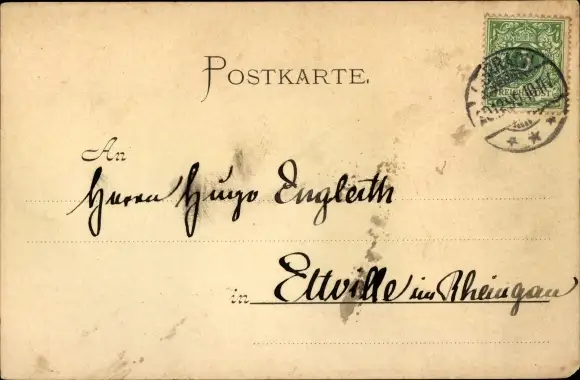 POSTKARTE.
An
Herrn Hugo Engleith
in Eltville im Rheingau